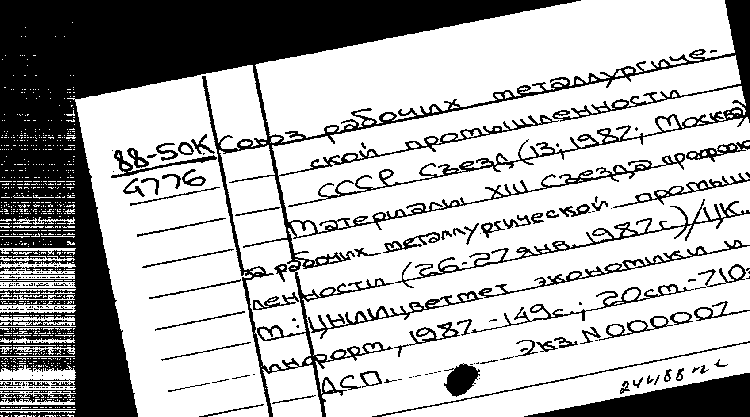 88-50К
4776
Союз рабочих металлургиче-
ской промышленности
СССР. Съезд (13; 1987; Москва)
Материалы XIII съезда профсою
за рабочих металлургической промыш
ленности (26-27 янв. 1987г.)/ЦК.
м.: ЦНИИцветмет экономики и
информ., 1987. -149с.; 20см.-710
ДСП. Экз. N 000007